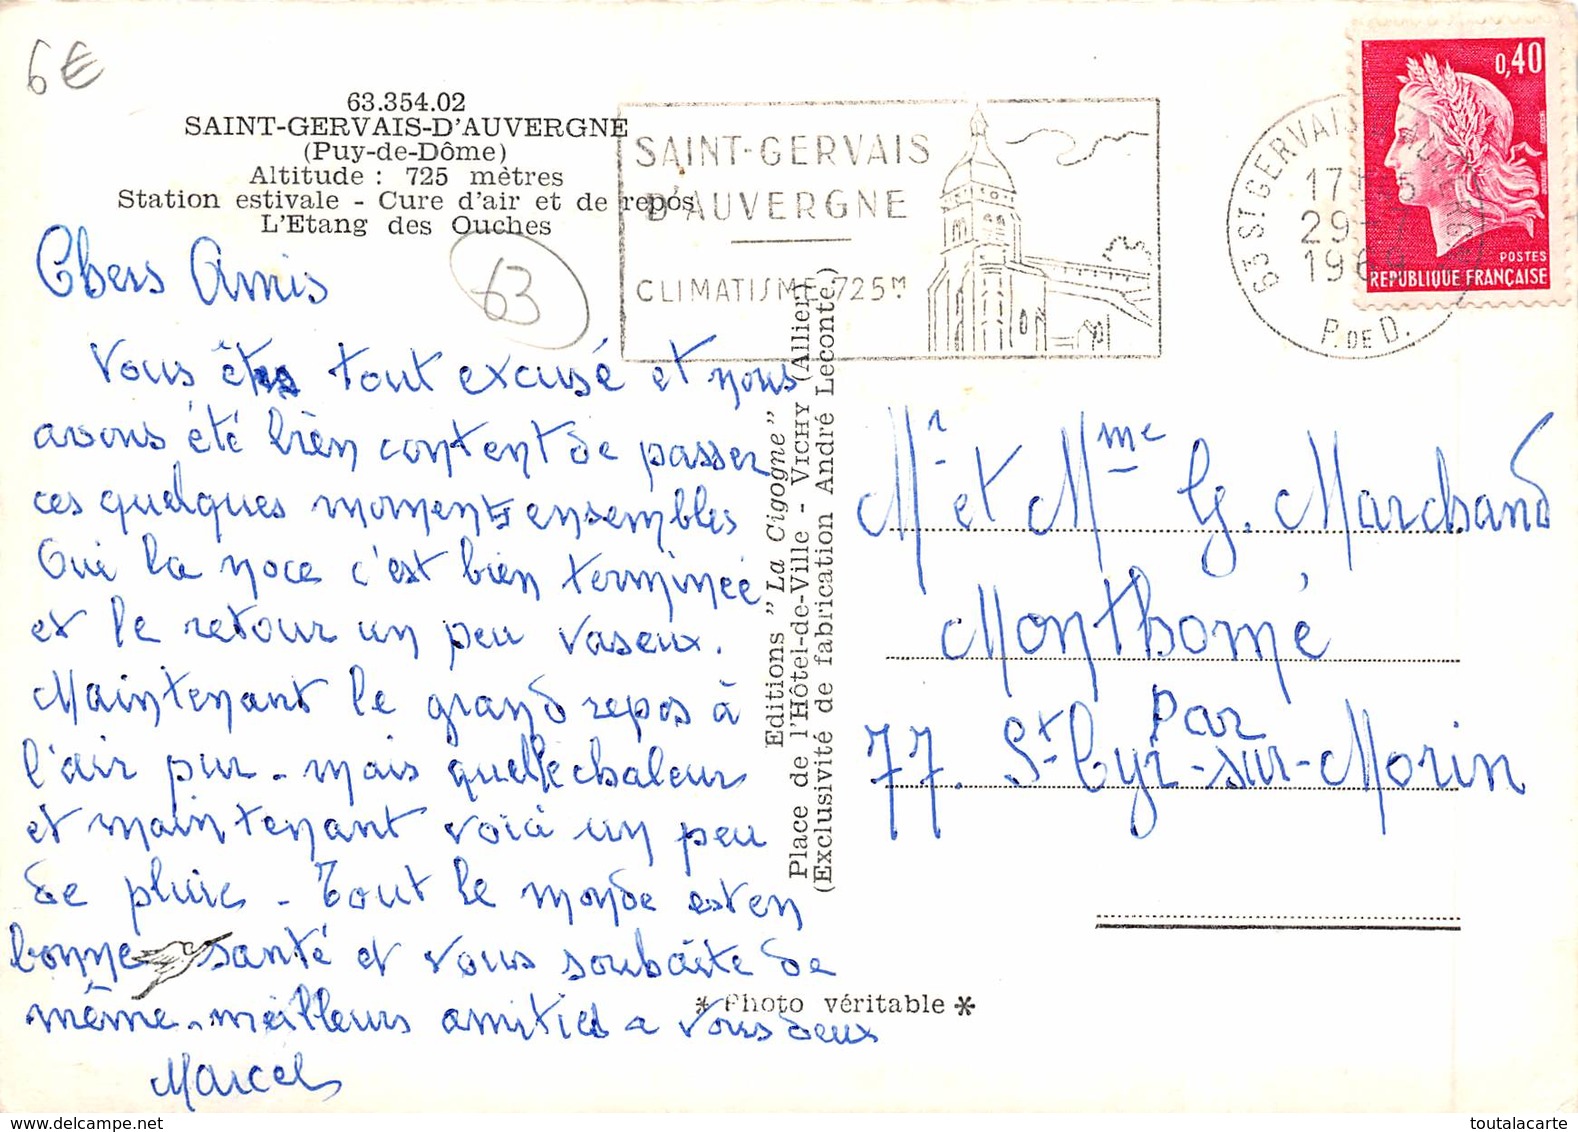 6€
63.354.02
SAINT-GERVAIS-D'AUVERGNE
(Puy-de-Dôme)
Altitude : 725 mètres
Station estivale - Cure d'air et de repos
L'Etang des Ouches
63
SAINT-GERVAIS
D'AUVERGNE
CLIMATISME 725M.
63 ST GERVAIS D'AUVERGNE
17H15
29-7
1969
P. DE D.
0,40
POSTES
REPUBLIQUE FRANÇAISE
Chers Amis
Vous êtes tout excusé et nous
avons été bien content de passer
ces quelques moments ensembles
Oui la noce c'est bien terminée
et le retour un peu vaseux.
Maintenant le grand repos à
l'air pur - mais quelle chaleur
et maintenant voià un peu
de pluie - Tout le monde est en
bonne santé et vous souhaite de
même - meilleurs amitiés a vous deux
Marcel
Editions "La Cigogne"
Place de l'Hôtel-de-Ville - VICHY (Allier)
(Exclusivité de fabrication André Leconte)
* Photo véritable *
Mr et Mme G. Marchand
Monthomé
par
77. St-Cyr-sur-Morin
toutalacarte